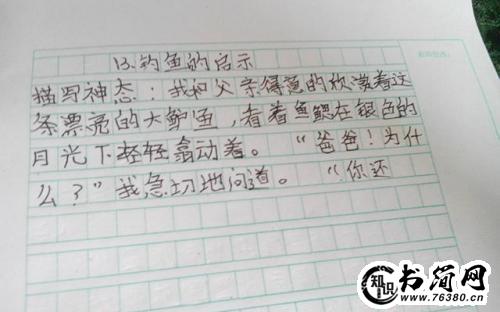 13.钓鱼的启示
描写神态:我和父亲得意的欣赏着这
条票亮的大鲈鱼,看着鱼鳃在银色的
月光下轻轻翕动着。“爸爸!为什
么?”我急切地问道。“你还
知识
书简网
www.76380.cn